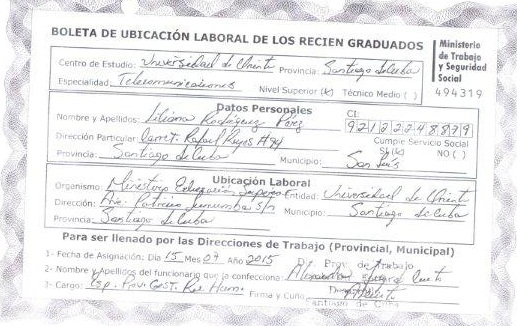 BOLETA DE UBICACIÓN LABORAL DE LOS RECIEN GRADUADOS
Ministerio
de Trabajo
y Seguridad
Social
494319
Centro de Estudio: Universidad de Oriente Provincia: Santiago de Cuba
Especialidad: Telecomunicaciones Nivel Superior (x) Técnico Medio ( )
Datos Personales
Nombre y Apellidos: Liliana Rodríguez Pérez
CI:
92122248879
Dirección Particular: Carret. Rafael Reyes #94
Cumple Servicio Social
SI (x) NO ( )
Provincia: Santiago de Cuba Municipio: San Luís
Ubicación Laboral
Organismo: Ministerio Educación Superior Entidad: Universidad de Oriente
Dirección: Ave. Patricio Lumumba s/n Municipio: Santiago de Cuba
Provincia: Santiago de Cuba
Para ser llenado por las Direcciones de Trabajo (Provincial, Municipal)
1- Fecha de Asignación: Dia 15 Mes 07 Año 2015
Dir. Prov. de Trabajo
2- Nombre y Apellidos del funcionario que la confecciona:
3- Cargo: Esp. Prov. Gest. Rec. Hum. Firma y Cuño
Santiago de Cuba